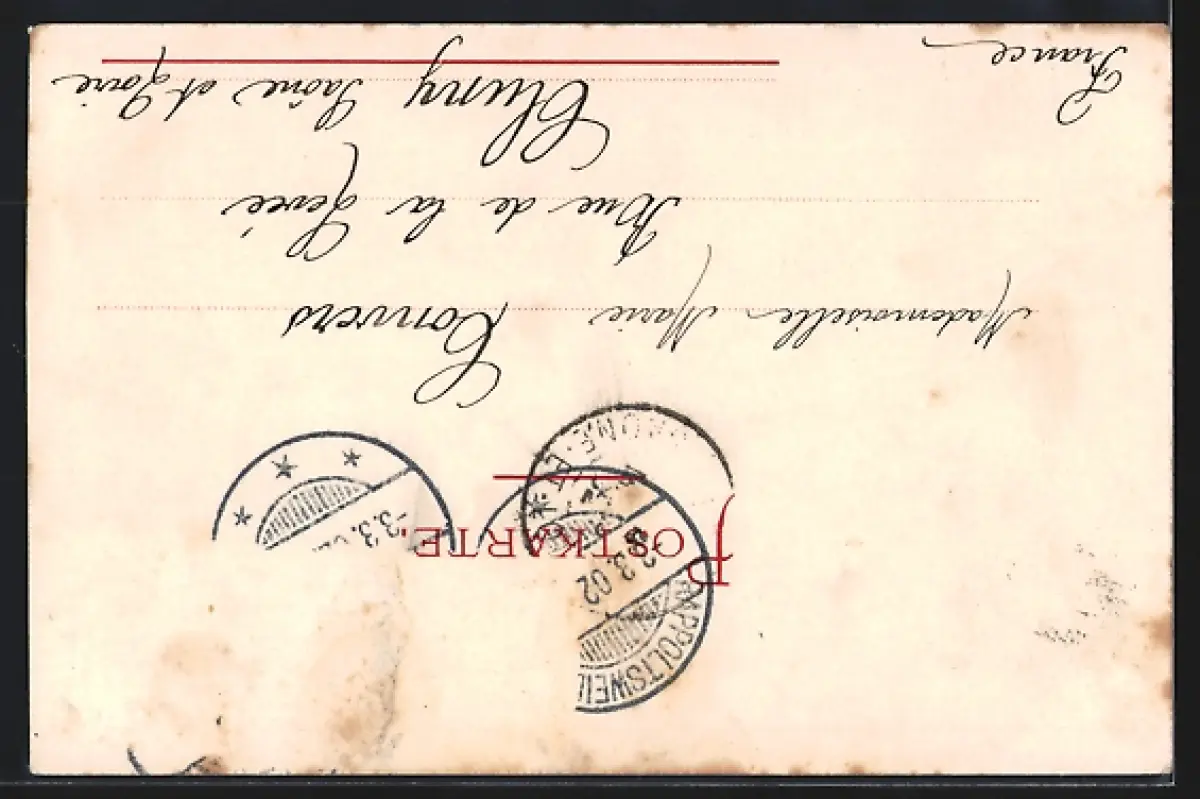 POSTKARTE.
RAPPOLTSWEIL
3.3.02
3.3.
Mademoiselle Marie Convers
Rue de la Levée
Cluny Saône et Loire
France